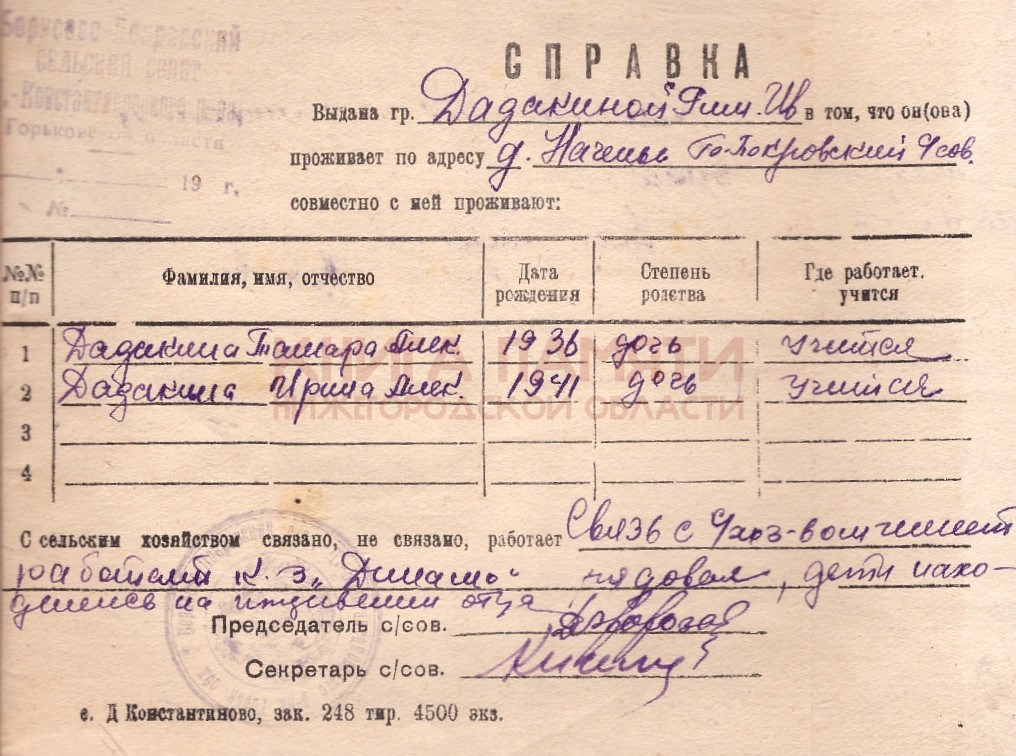 Борисово-Покровский
сельский совет
Д.-Константиновского р-на,
Горьковской области
19 г.
№
СПРАВКА
Выдана гр. Дадакиной Ив в том, что он(ова)
проживает по адресу д. Покровский
совместно с ней проживают:
№№ п/п
Фамилия, имя, отчество
Дата рождения
Степень родства
Где работает. учится
1 Дадакина Тамара Алек. 1936 дочь Учится
2 Дадакина Ирина Алек. 1941 дочь Учится
3
4
КНИГА ПАМЯТИ
НИЖЕГОРОДСКОЙ ОБЛАСТИ
С сельским хозяйством связано, не связано, работает Связь с
работает к-з „Динамо" рядовая, дети нахо-
дились на иждивении отца
Председатель с/сов.
Секретарь с/сов.
с. Д Константиново, зак. 248 тир. 4500 экз.